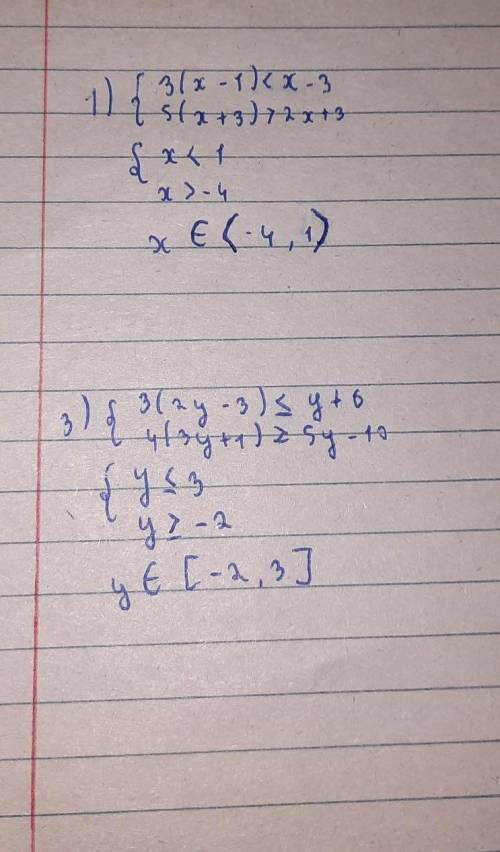 1) { 3(x - 1) < x - 3
5(x + 3) > 2x + 3
{ x < 1
x > -4
x ∈ (-4, 1)
3) { 3(2y - 3) ≤ y + 6
4(3y + 1) ≥ 5y - 10
{ y ≤ 3
y ≥ -2
y ∈ [-2, 3]